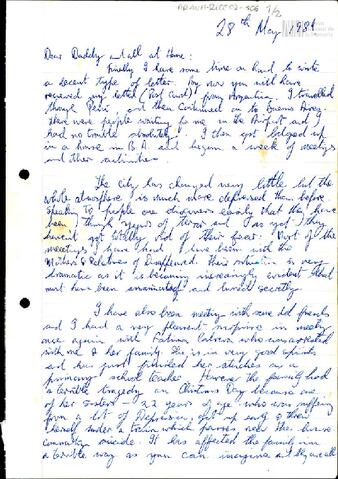 28th May 1984
Dear Daddy and all at Home:
Finally I have some time on hand to write
a decent type of letter. By now you will have
received my letter (Post Card) from Argentina. I travelled
through Peru and then continued on to Buenos Aires.
There were people waiting to me in the Airport and I
had no trouble absolutely! I then got lodged up
in a house in B.A. and began a week of meetings
and other activities.
The city has changed very little but the
whole atmosphere is much more different than before.
Speaking to people one discovers easily that they have
been through years of terror and as yet they
haven't got totally rid of their fear. Most of the
meetings I have had have been with the
Mothers & Relatives of Disappeared. Their situation is very
dramatic as it is becoming increasingly evident that
most have been assassinated and buried secretly.
I have also been meeting with some old friends
and I had a very pleasant surprise in meeting
once again with Fatima Cabrera who was arrested
with me & her family. She is in very good spirits
and has just finished her studies as a
primary school teacher. However the family had
a terrible tragedy on Christmas Day because one
of her sisters of 22 years of age who was suffering
from a lot of Depression, got up early & threw
herself under a train which passes near the house
committing suicide. It has affected the family in
a terrible way as you can imagine and they are all